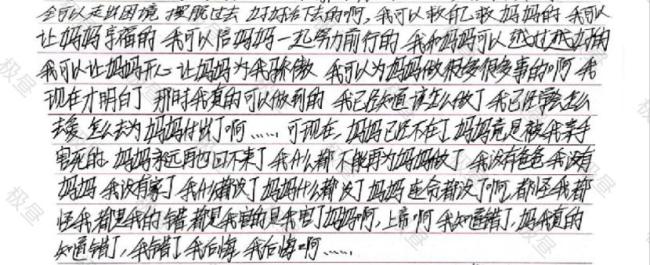 会可以走出困境 摆脱过去 好好活下去的啊,我可以救自己救妈妈的 我可以
让妈妈幸福的 我可以陪妈妈一起努力前行的 我和妈妈可以越过越好的
我可以让妈妈开心 让妈妈为我骄傲 我可以为妈妈做很多很多事的啊 我
现在才明白了 那时我真的可以做到的 我已经知道该怎么做了 我已经学会怎么
去爱 怎么去为妈妈付出了啊……可现在,妈妈已经不在了 妈妈竟是被我亲手
害死的 妈妈永远再也回不来了 我什么都不能再为妈妈做了 我没有爸爸 我没有
妈妈 我没有家了 我什么都没了 妈妈什么都没了 妈妈连命都没了啊,都怪我都
怪我都是我的错 都是我害的是我害了妈妈啊,上帝啊 我知道错了,妈我真的
知道错了,我错了 我后悔 我后悔啊……
极昼